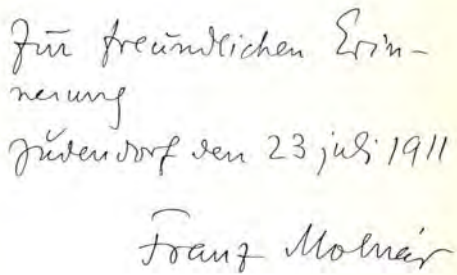 Zur freundlichen Erin-
nerung
Judendorf den 23 juli 1911
Franz Molnár